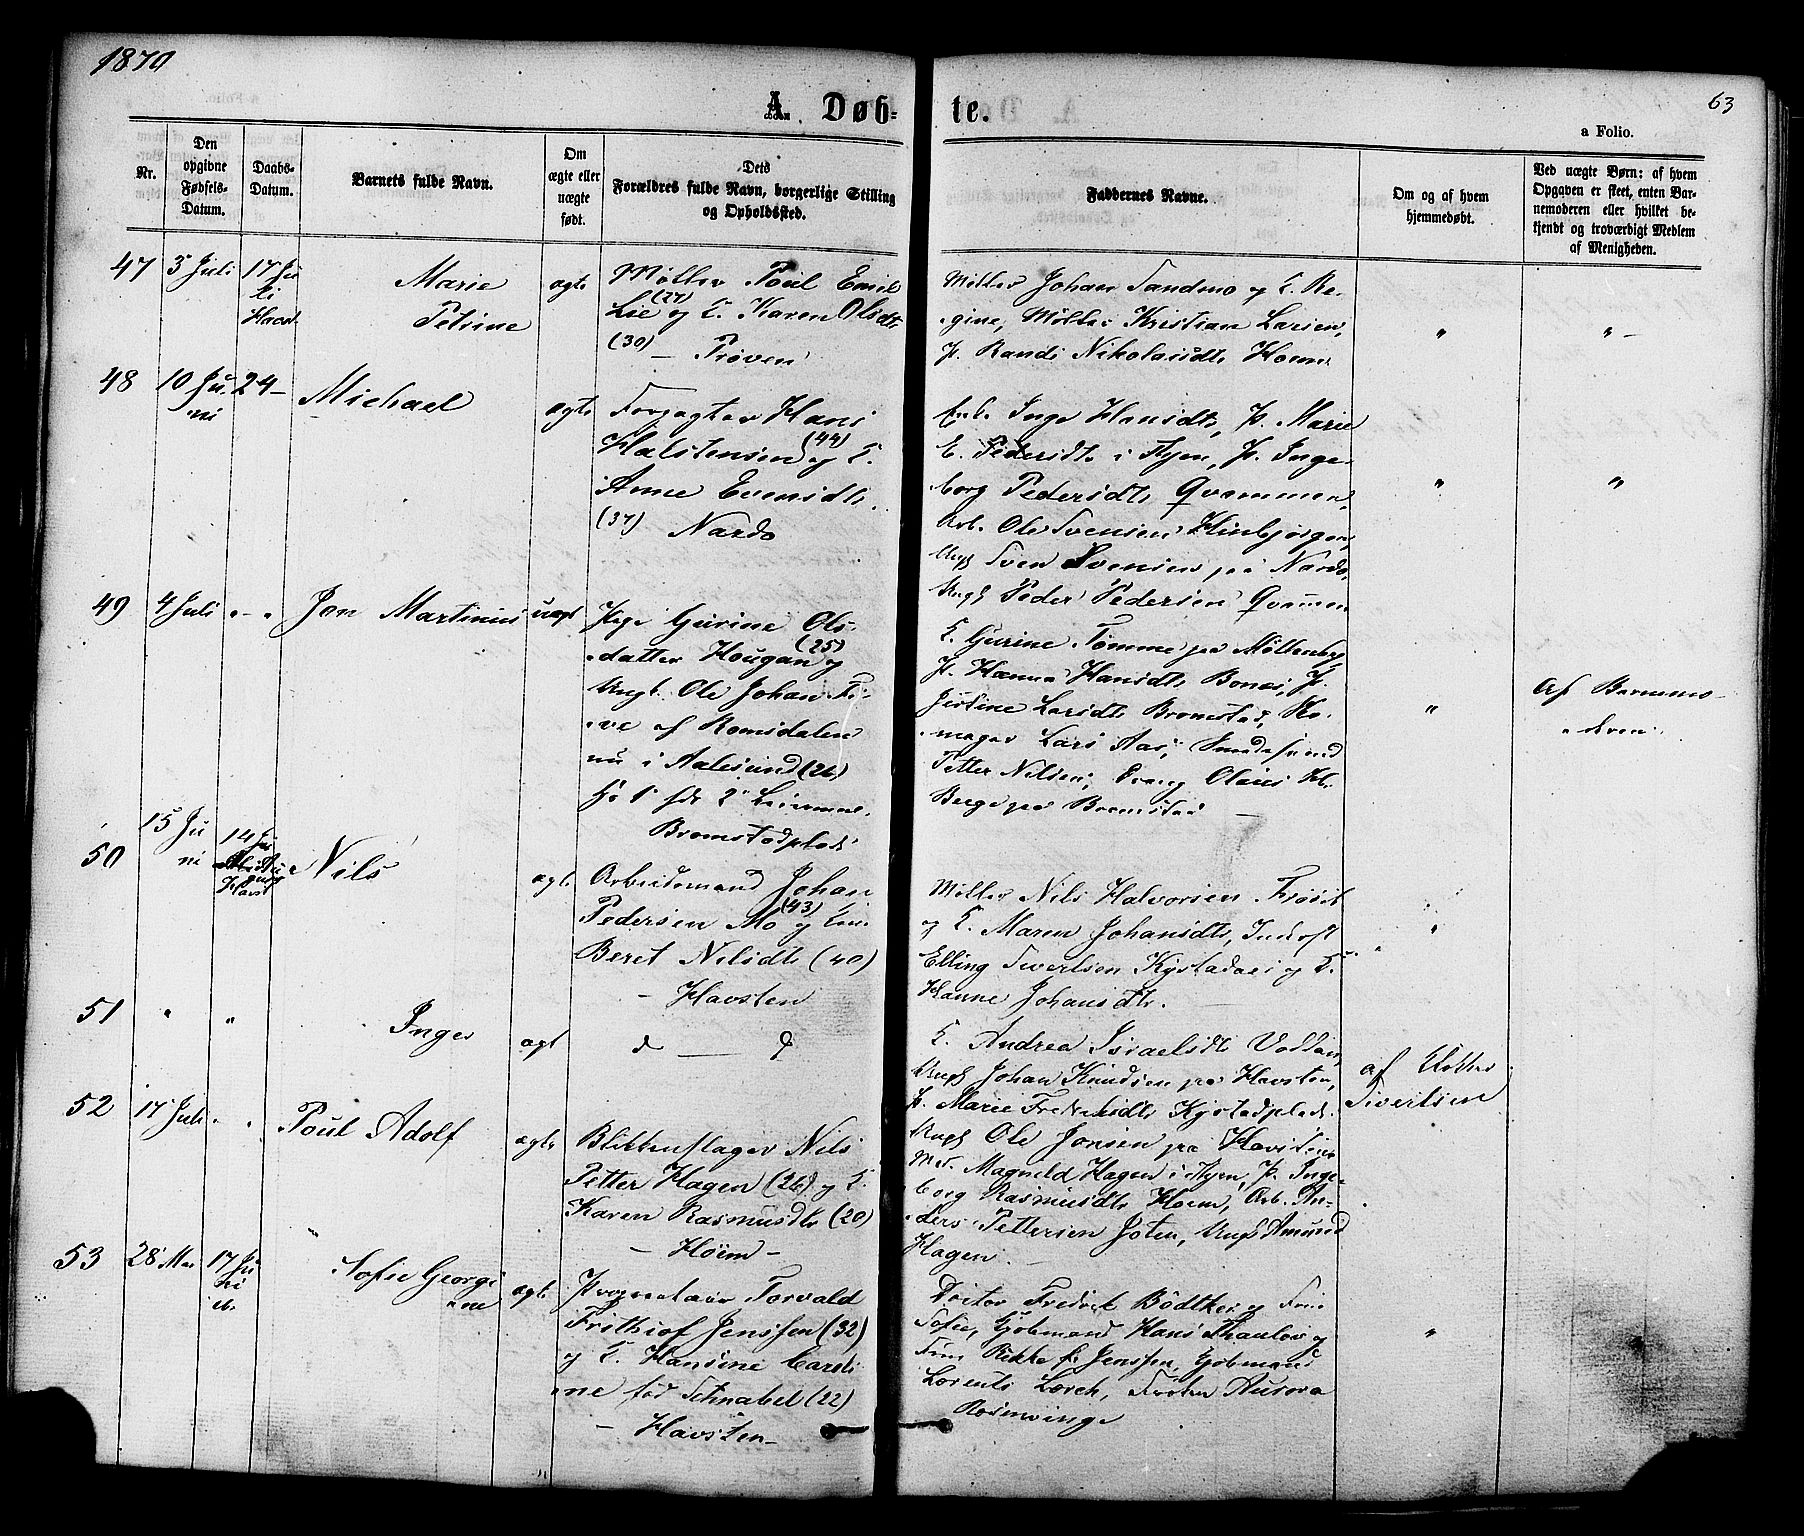 1870
63
A. Døb-
te.
a Folio.
Nr.
Den
opgivne
Fødsels-
Datum.
Daabs-
Datum.
Barnets fulde Navn.
Om
ægte eller
uægte
født.
Dets
Forældres fulde Navn, borgerlige Stilling
og Opholdssted.
Faddernes Navne.
Om og af hvem
hjemmedøbt.
Ved uægte Børn: af hvem
Opgaven er skeet, enten Bar-
nemoderen eller hvilket be-
kjendt og troværdigt Medlem
af Menigheden.
47
5 Juli
17 Ju
li
Havst.
Marie
Petrine
ægte
Møller Poul Emil
(27)
Lie og H. Karen Olsdt.
(30) – Prøven
Møller Johan Sandmo og H. Re-
gine, Møller Kristian Larsen,
P. Randi Nikolaisdt. Hoem
"
" –
48
10 Ju
ni
24 –
Michael
ægte
Forpagter Hans
Halstensen (44) og H.
Anne Evensdt.
(37) Nardo
Enk. Inge Hansdt., P. Marie
E. Pedersdt. i Hjem, P. Inge-
borg Pedersdt. Qvammen,
Arb. Ole Svensen
Ungk. Sven Svensen på Nardo,
Ungk. Peder Pedersen Qvammen
"
"
49
4 Juli
" – "
Jon Martinus
uægt
Pige Gurine Ols-
datter Hougan (25) og
Ungk. Ole Johan
af Romsdalen
nu i Aalesund (26)
Bromstadplads
H. Gurine Tømme på Møllenberg
P. Hanna Hansdt. P.
Justine Larsdt. Bromstad, Sko-
mager Lars Aas, Smedesvend
Petter Nilsen, Olaus
Berge på Bromstad –
"
Af Barnemo-
deren
50
15 Ju
ni
14
Havst
Nils
ægte
Arbeidsmand Johan
Pedersen Mo (43) og
Beret Nilsdt. (40)
– Havsten
Møller Nils Halvorsen
og H. Maren Johansdt., Inderst
Elling Sivertsen Kystadaas og H.
Hanne Johansdt.
"
51
"
"
Inger
ægt
d – d
H. Andrea Israelsdt.
Ungk. Johan Knudsen på Havsten,
P. Marie Kystadplads.
Ungk. Ole Jonsen på Havsten
af
Sivertsen
52
17 Juli
"
"
Poul Adolf
ægte
Blikkenslager Nils
Petter Hagen (26) og H.
Karen Rasmusdt. (20)
– Høiem –
Magnild Hagen i Hjem, P. Inge-
borg Rasmusdt. Hoem, Arb. An-
ders Pettersen Ungk. Amund
Hagen –
53
28 Mai
17 Ju
ni
Sofie Georgi
ne
ægte
Proprietair Torvald
Frithiof Jenssen (32)
og H. Hansine Caroli
ne fød Schnabel (22)
– Havsten –
Doktor Fredrik Bødtker og Frue
Sofie, Kjøbmand Hans Thaulow og
Frue Rikke f. Jenssen, Kjøbmand
Lorents Lorck, Frøken Aurora
Rosenvinge
"